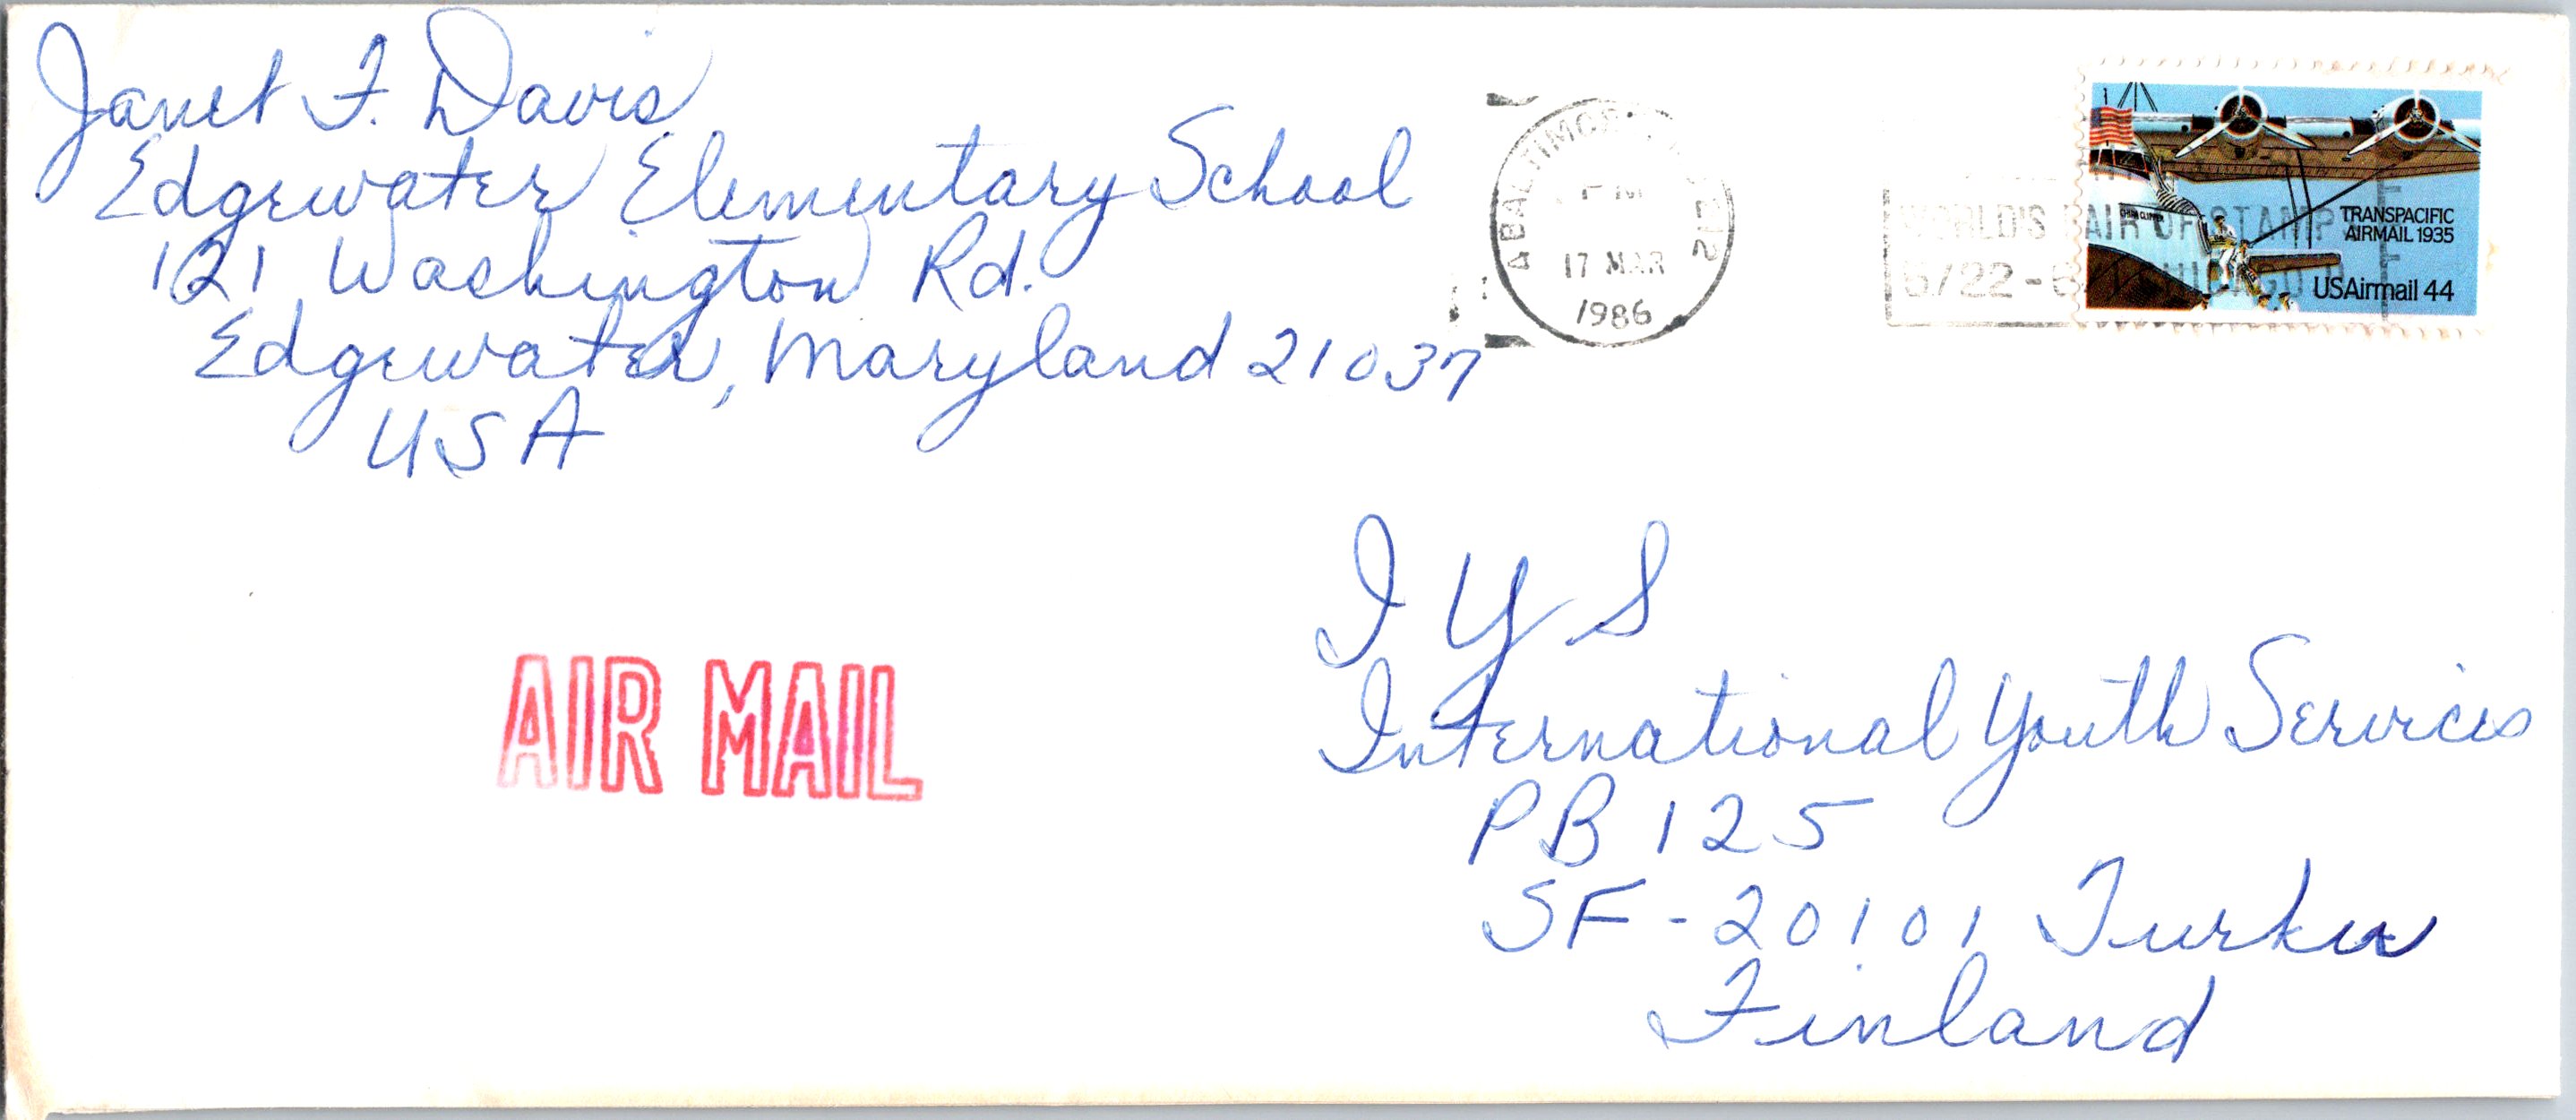 Janet F. Davis
Edgewater Elementary School
121 Washington Rd.
Edgewater, Maryland 21037
USA
BALTIMORE 212
PM
17 MAR
1986
WORLD'S FAIR OF STAMPS
5/22-6/1 CHICAGO
CHINA CLIPPER
TRANSPACIFIC
AIRMAIL 1935
USAirmail 44
AIR MAIL
I Y S
International Youth Services
PB 125
SF-20101 Turku
Finland